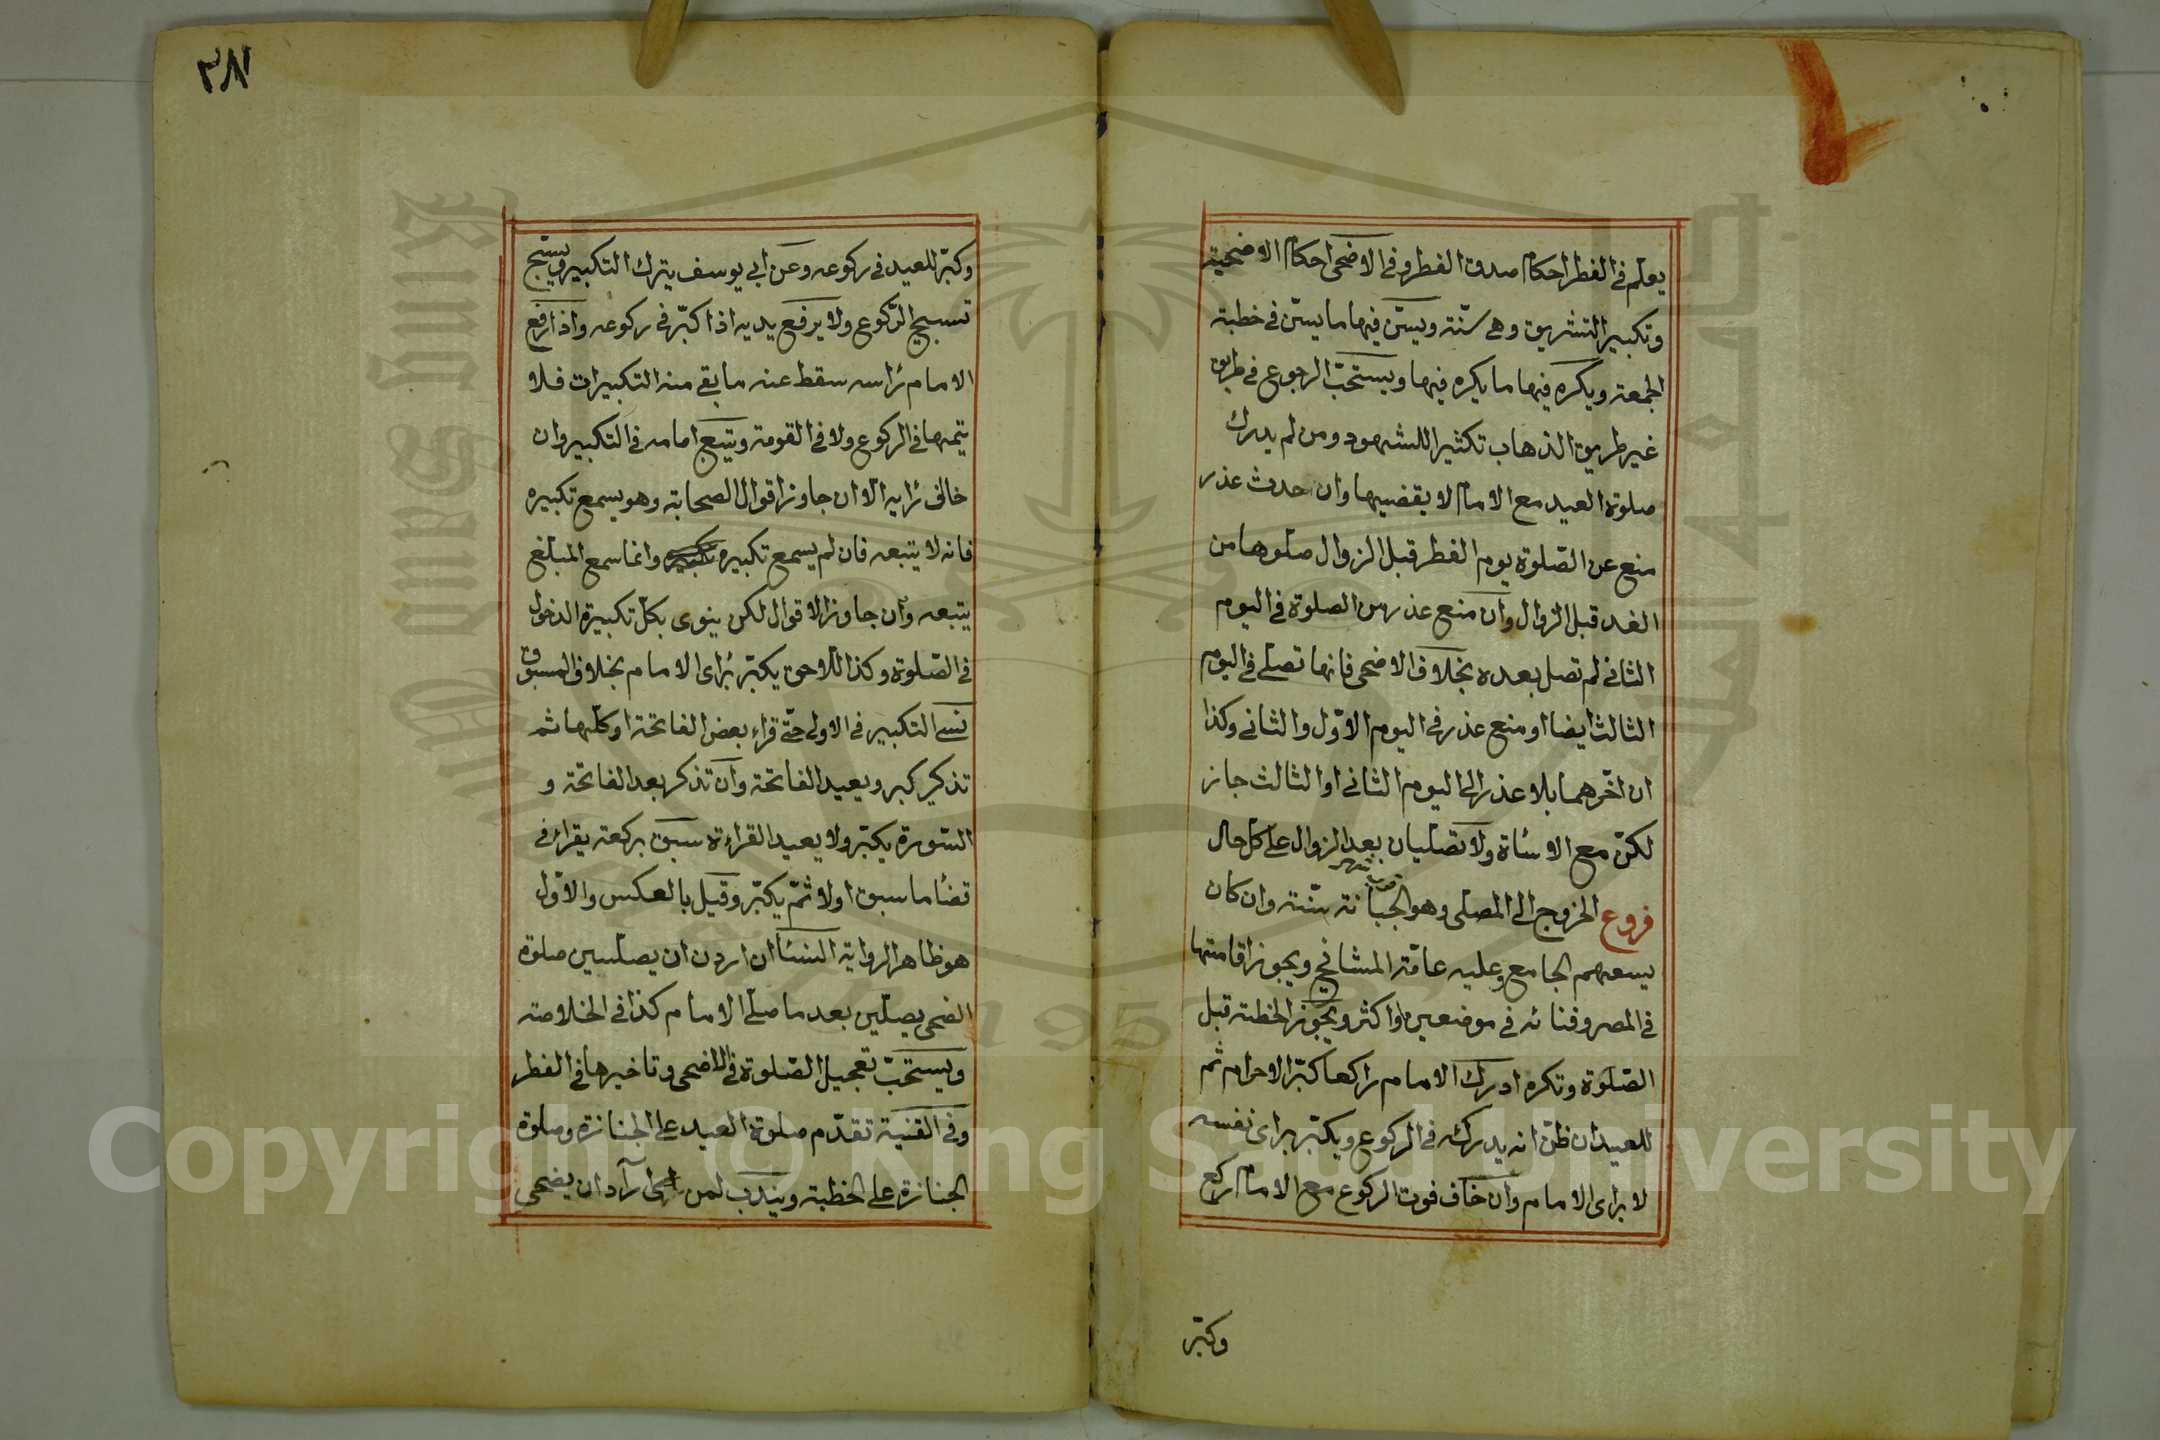 يعلم فى الفطر احكام صدقة الفطر وفى الاضحى احكام الاضحية
وتكبير التشريق وهى سنّة ويسنّ فيها ما يسنّ فى خطبة
الجمعة ويكره فيها ما يكره فيها ويستحبّ الرجوع فى طريق
غير طريق الذهاب تكثيرا للشهود ومن لم يدرك
صلوة العيد مع الامام لا يقضيها وان حدث عذر
منع عن الصّلوة يوم الفطر قبل الزوال صلوها من
الغد قبل الزوال وان منع عذر من الصلوة فى اليوم
الثانى لم تصل بعده بخلاف الاضحى فانها تصلى فى اليوم
الثالث ايضا او منع عذر فى اليوم الاوّل والثانى وكذا
ان اخّرهما بلا عذر الى اليوم الثانى او الثالث جاز
لكن مع الاسائة ولا تصليان بعد الزوال على كل حال
فروع الخروج الى المصلى وهو الجبانة سنّة وان كان
يسعهم الجامع وعليه عامّة المشايخ ويجوز اقامتها
فى المصر وفنائه فى موضعين او اكثر ويجوز الخطبة قبل
الصّلوة وتكره ادرك الامام راكعا كبّر الاحرام ثم
للعيد ان ظنّ انه يدركه فى الركوع ويكبّر براى نفسه
لا براى الامام وان خاف فوت الركوع مع الامام ركع
وكبّر
٣٨٧
وكبّر للعيد فى ركوعه وعن ابى يوسف يترك التكبير ويسبّح
تسبيح الرّكوع ولا يرفع يديه اذا كبّر فى ركوعه واذا رفع
الامام رأسه سقط عنه ما بقى منه التكبيرات فلا
يتمها فى الركوع ولا فى القومة ويتبع امامه فى التكبير وان
خالف رأيه الا ان جاوز اقوال الصحابة وهو يسمع تكبيره
فانه لا يتبعه فان لم يسمع تكبيره وانما سمع المبلغ
يتبعه وان جاوز الاقوال لكن ينوى بكل تكبيرة الدخول
فى الصّلوة وكذا اللاحق يكبّر براى الامام بخلاف المسبوق
نسى التكبير فى الاولى حتّى قراء بعض الفاتحة او كلّها ثم
تذكر كبر ويعيد الفاتحة وان تذكر بعد الفاتحة و
السّورة يكبّر ولا يعيد القراءة سبق بركعة يقرأ فى
قضأ ما سبق اولا ثمّ يكبّر وقيل بالعكس والاوّل
هو ظاهر الرواية النسأ ان اردن ان يصلين صلوة
الضحى يصلين بعد ما صلّى الامام كذا فى الخلاصة
ويستحبّ تعجيل الصّلوة فى الاضحى وتاخيرها فى الفطر
وفى القنية تقدّم صلوة العيد على الجنازة وصلوة
الجنازة على الخطبة ويندب لمن اراد ان يضحى
Copyright © King Saud University
King Saud University
1957